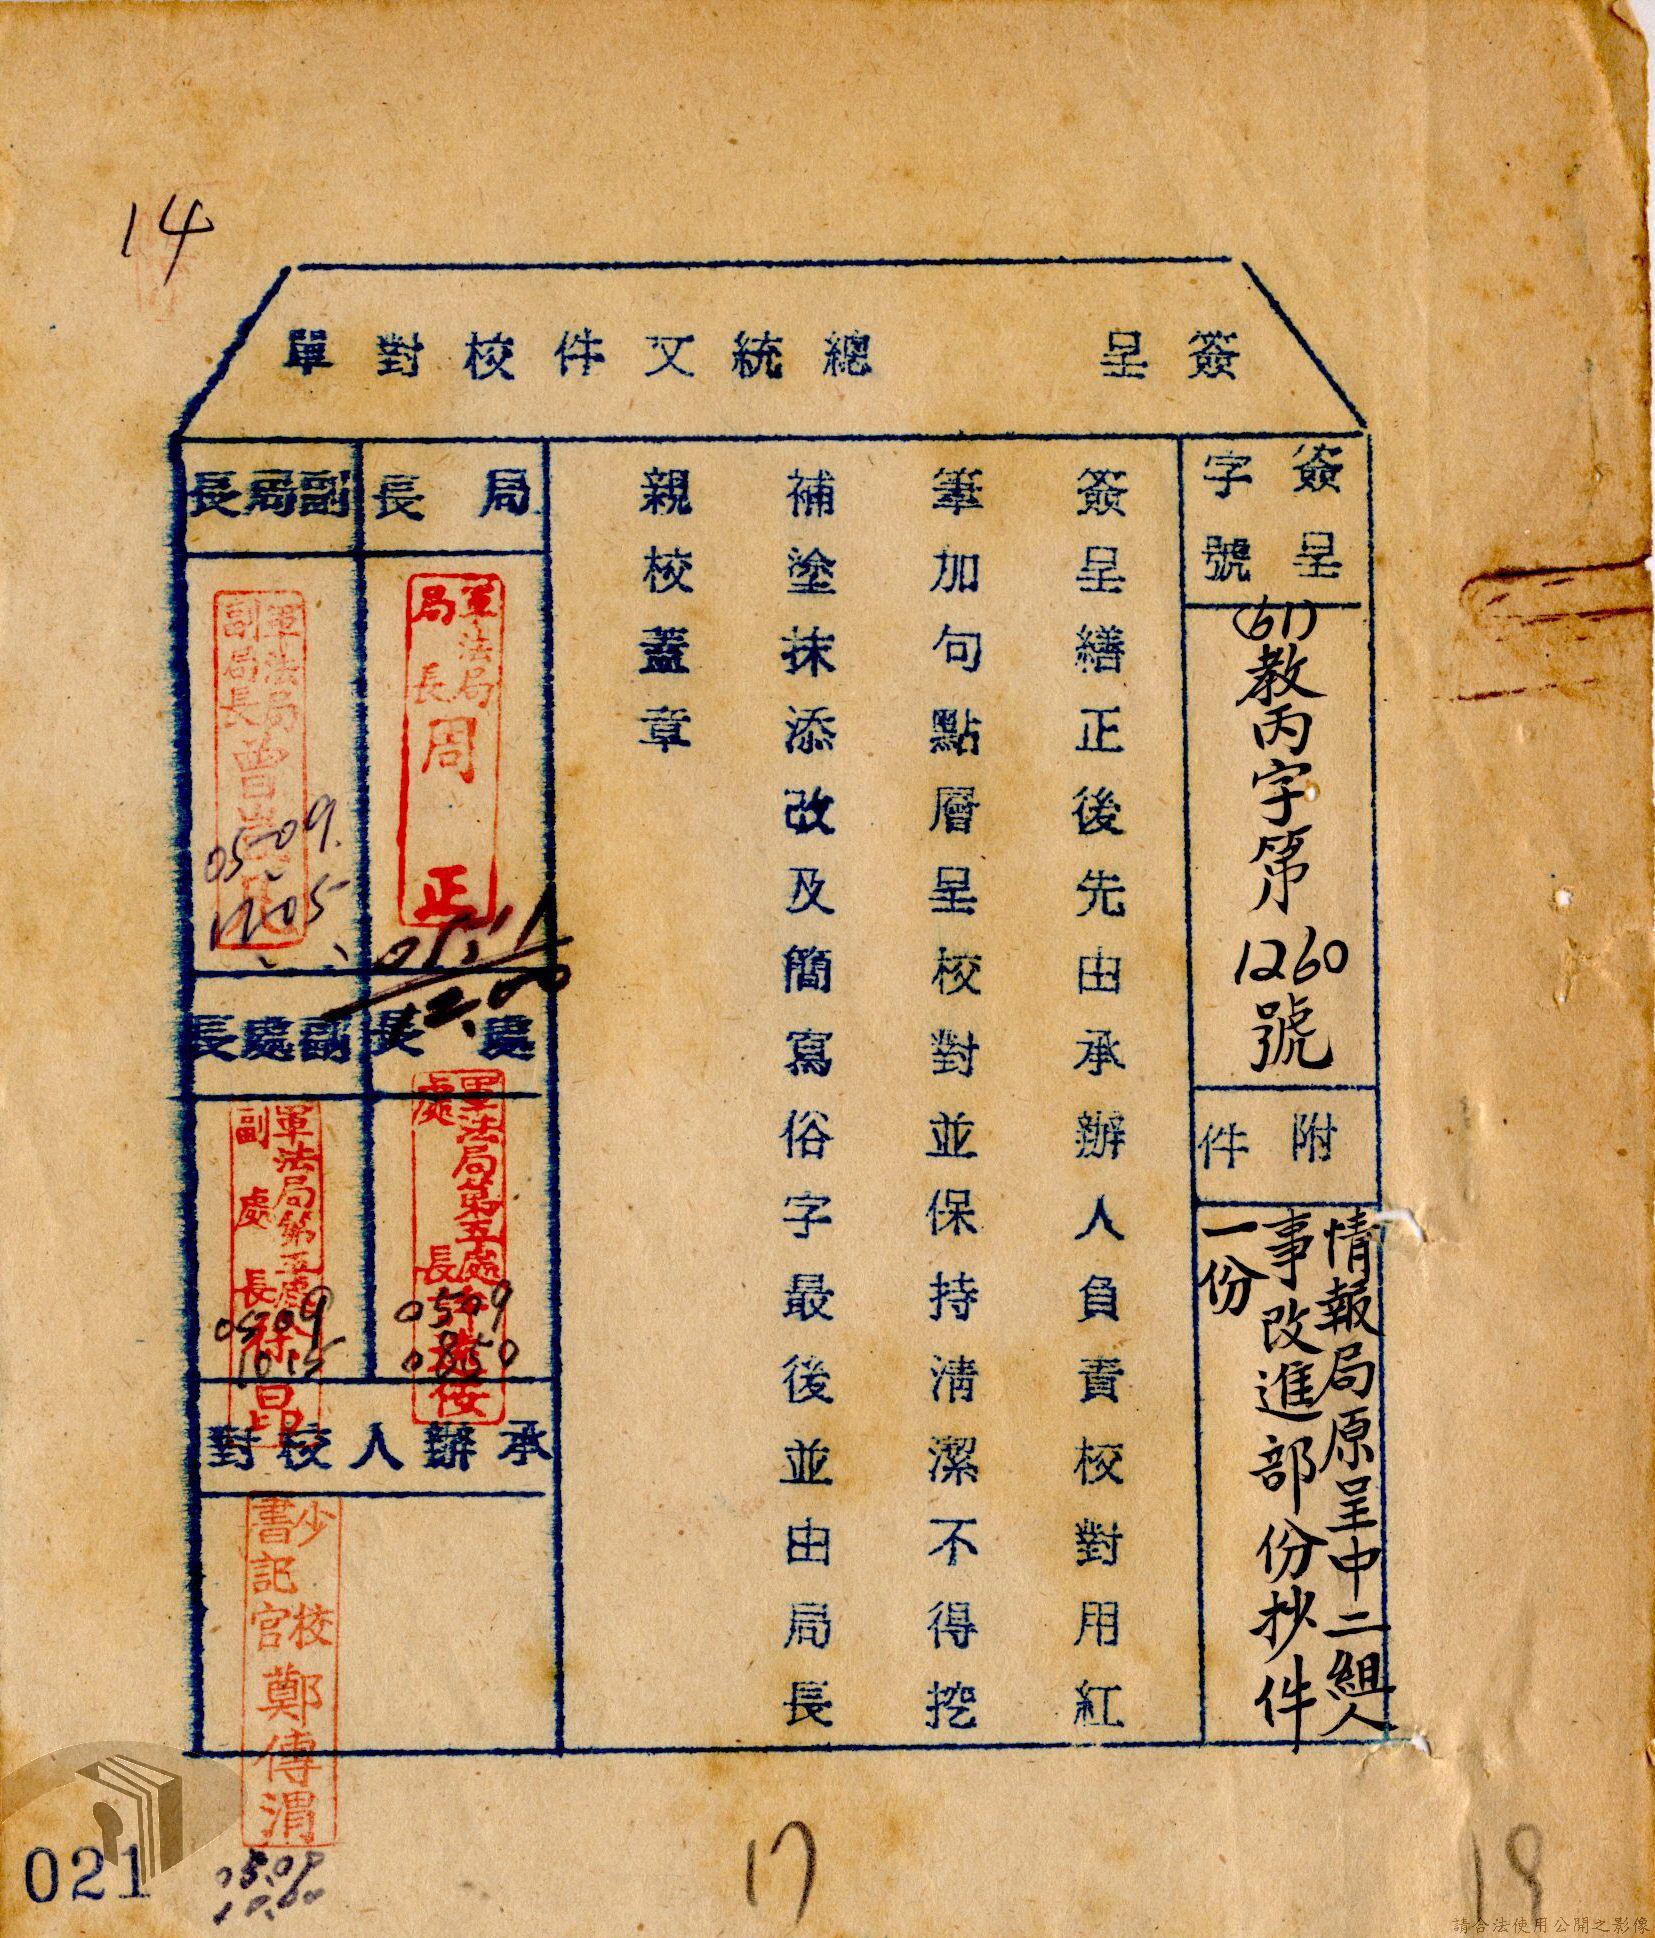 14
簽呈　　總統文件校對單
簽呈
字號
(61)教丙字第1260號
附件
情報局原呈中二組人
事改進部份抄件
一份
簽呈繕正後先由承辦人負責校對用紅
筆加句點層呈校對並保持清潔不得挖
補塗抹添改及簡寫俗字最後並由局長
親校蓋章
局長
軍法局
局長周正
12.00
副局長
軍法局
副局長曾
05.09.
12.05
處長
軍法局第五處
處長
0509
0850
副處長
軍法局第五處
副處長徐昌
0509
1015
承辦人校對
少校
書記官鄭傳渭
05.09
021
17
19
請合法使用公開之影像